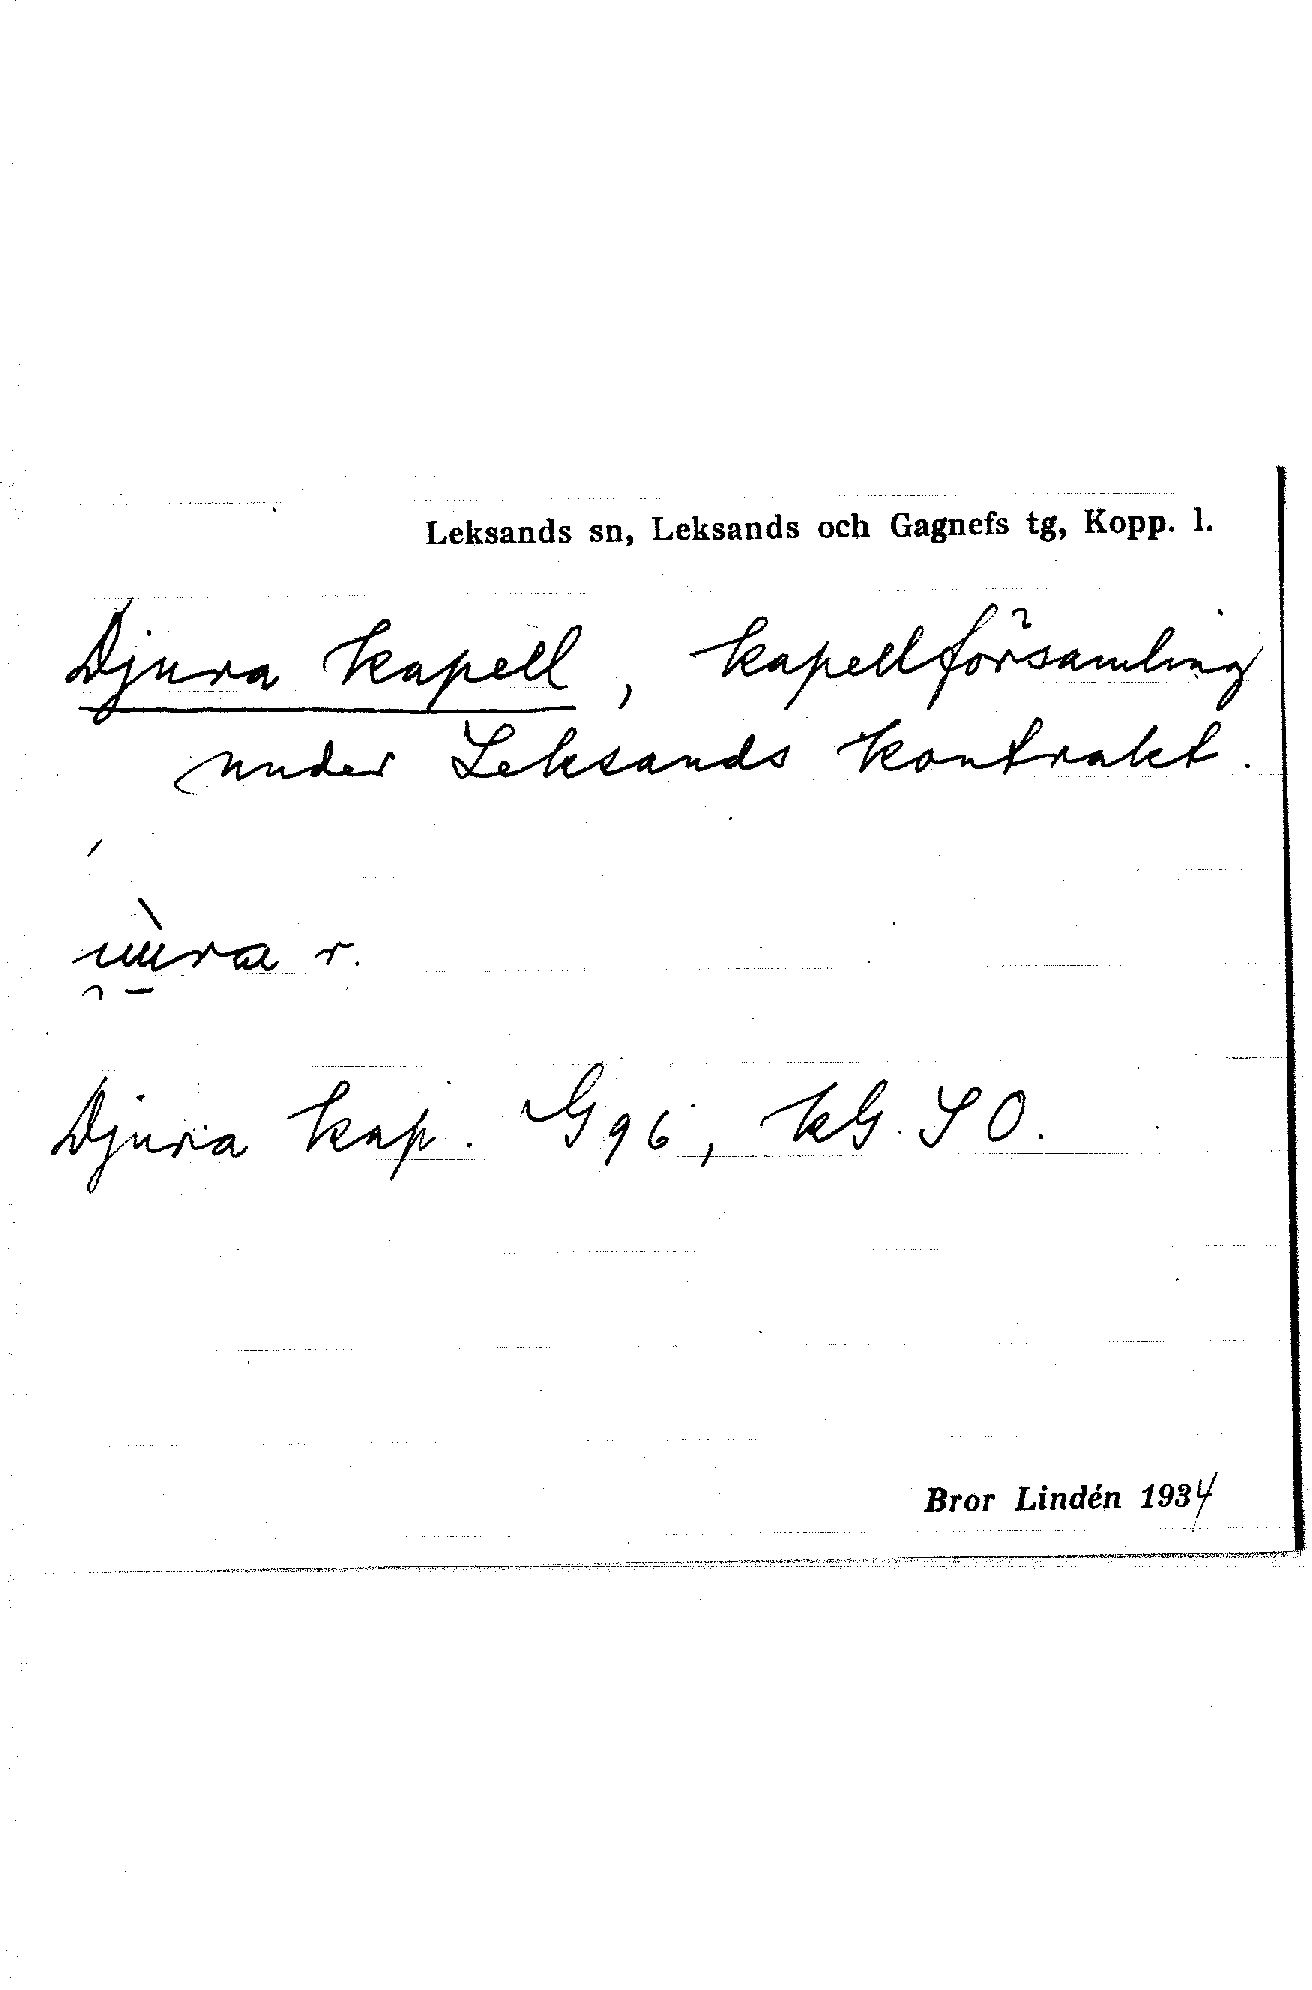 Leksands sn, Leksands och Gagnefs tg, Kopp. l.
Djura kapell, kapellförsamling
under Leksands kontrakt.
r.
Djura kap. G96, KG. SO.
Bror Lindén 1934